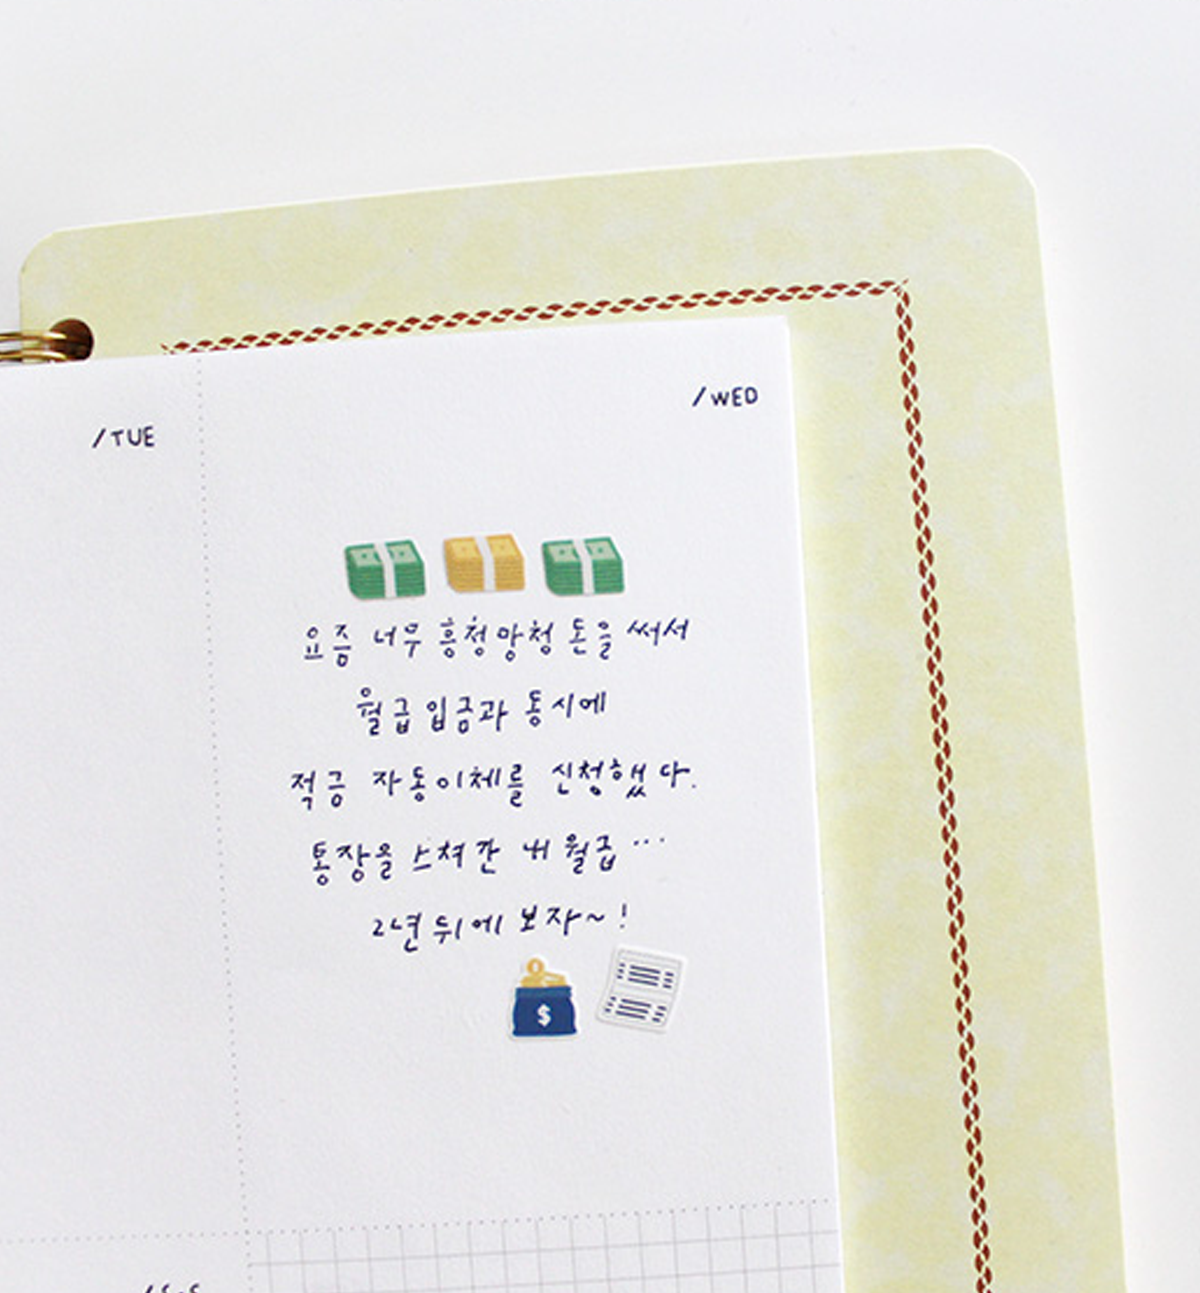 /TUE
/WED
요즘 너무 흥청망청 돈을 써서
월급 입금과 동시에
적금 자동이체를 신청했다.
통장을 스쳐간 내 월급...
2년 뒤에 보자~!
$